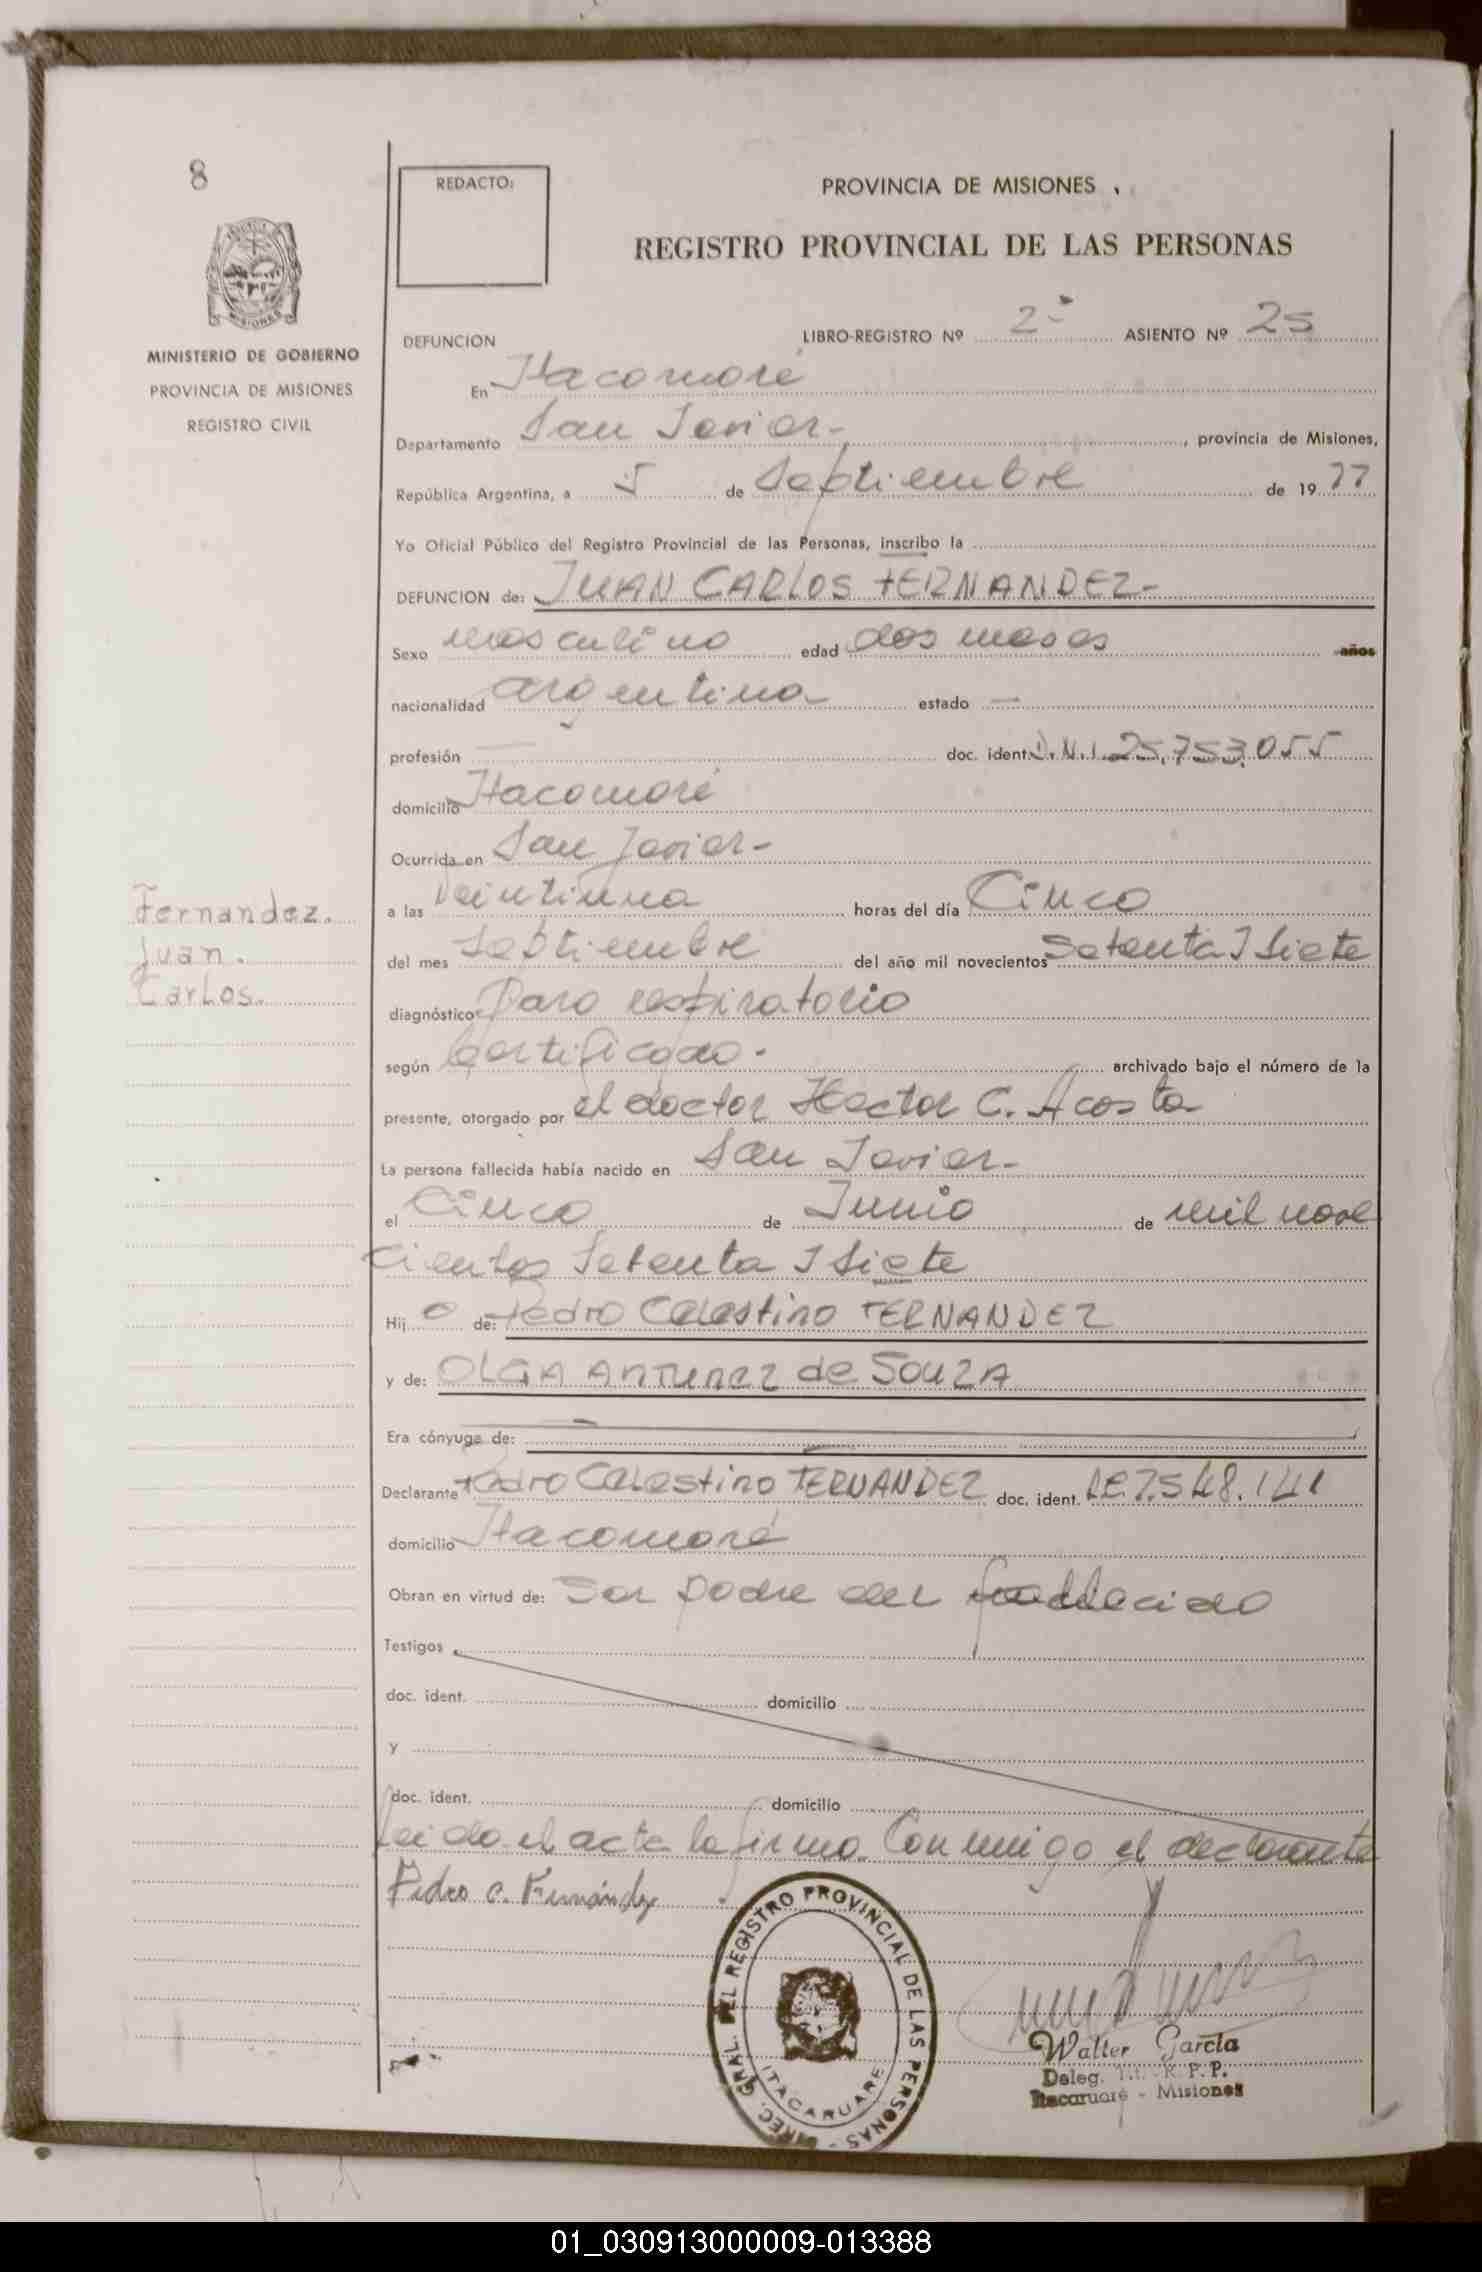 8
REDACTO:
PROVINCIA DE MISIONES
REGISTRO PROVINCIAL DE LAS PERSONAS
MISIONES
MINISTERIO DE GOBIERNO
PROVINCIA DE MISIONES
REGISTRO CIVIL
DEFUNCION LIBRO-REGISTRO Nº 2º ASIENTO Nº 25
En Itacaruaré
Departamento San Javier- , provincia de Misiones,
República Argentina, a 5 de Septiembre de 1977
Yo Oficial Público del Registro Provincial de las Personas, inscribo la
DEFUNCION de: JUAN CARLOS FERNANDEZ-
Sexo masculino edad dos meses años
nacionalidad argentina estado —
profesión — doc. ident. D.N.I. 25.753.055
domicilio Itacaruaré
Ocurrida en San Javier-
a las Veintiuna horas del día Cinco
del mes Septiembre del año mil novecientos Setenta I Siete
diagnóstico Paro respiratorio
según Certificado- archivado bajo el número de la
presente, otorgado por el doctor Hector C. Acosta
La persona fallecida había nacido en San Javier-
el Cinco de Junio de mil nove
cientos Setenta I Siete
Hijo de: Pedro Celestino FERNANDEZ
y de: OLGA ANTUNEZ de SOUZA
Era cónyuge de:
Declarante Pedro Celestino FERNANDEZ doc. ident. L.E. 7.548.141
domicilio Itacaruaré
Obran en virtud de: Ser padre del fallecido
Testigos
doc. ident. domicilio
y
doc. ident. domicilio
Leido el acta la firma Conmigo el declarante
Pedro C. Fernández
Fernandez.
Juan.
Carlos.
DIREC. GRAL. DEL REGISTRO PROVINCIAL DE LAS PERSONAS -
ITACARUARE
Walter García
Deleg. Tit. R. P. P.
Itacaruaré - Misiones
01_030913000009-013388